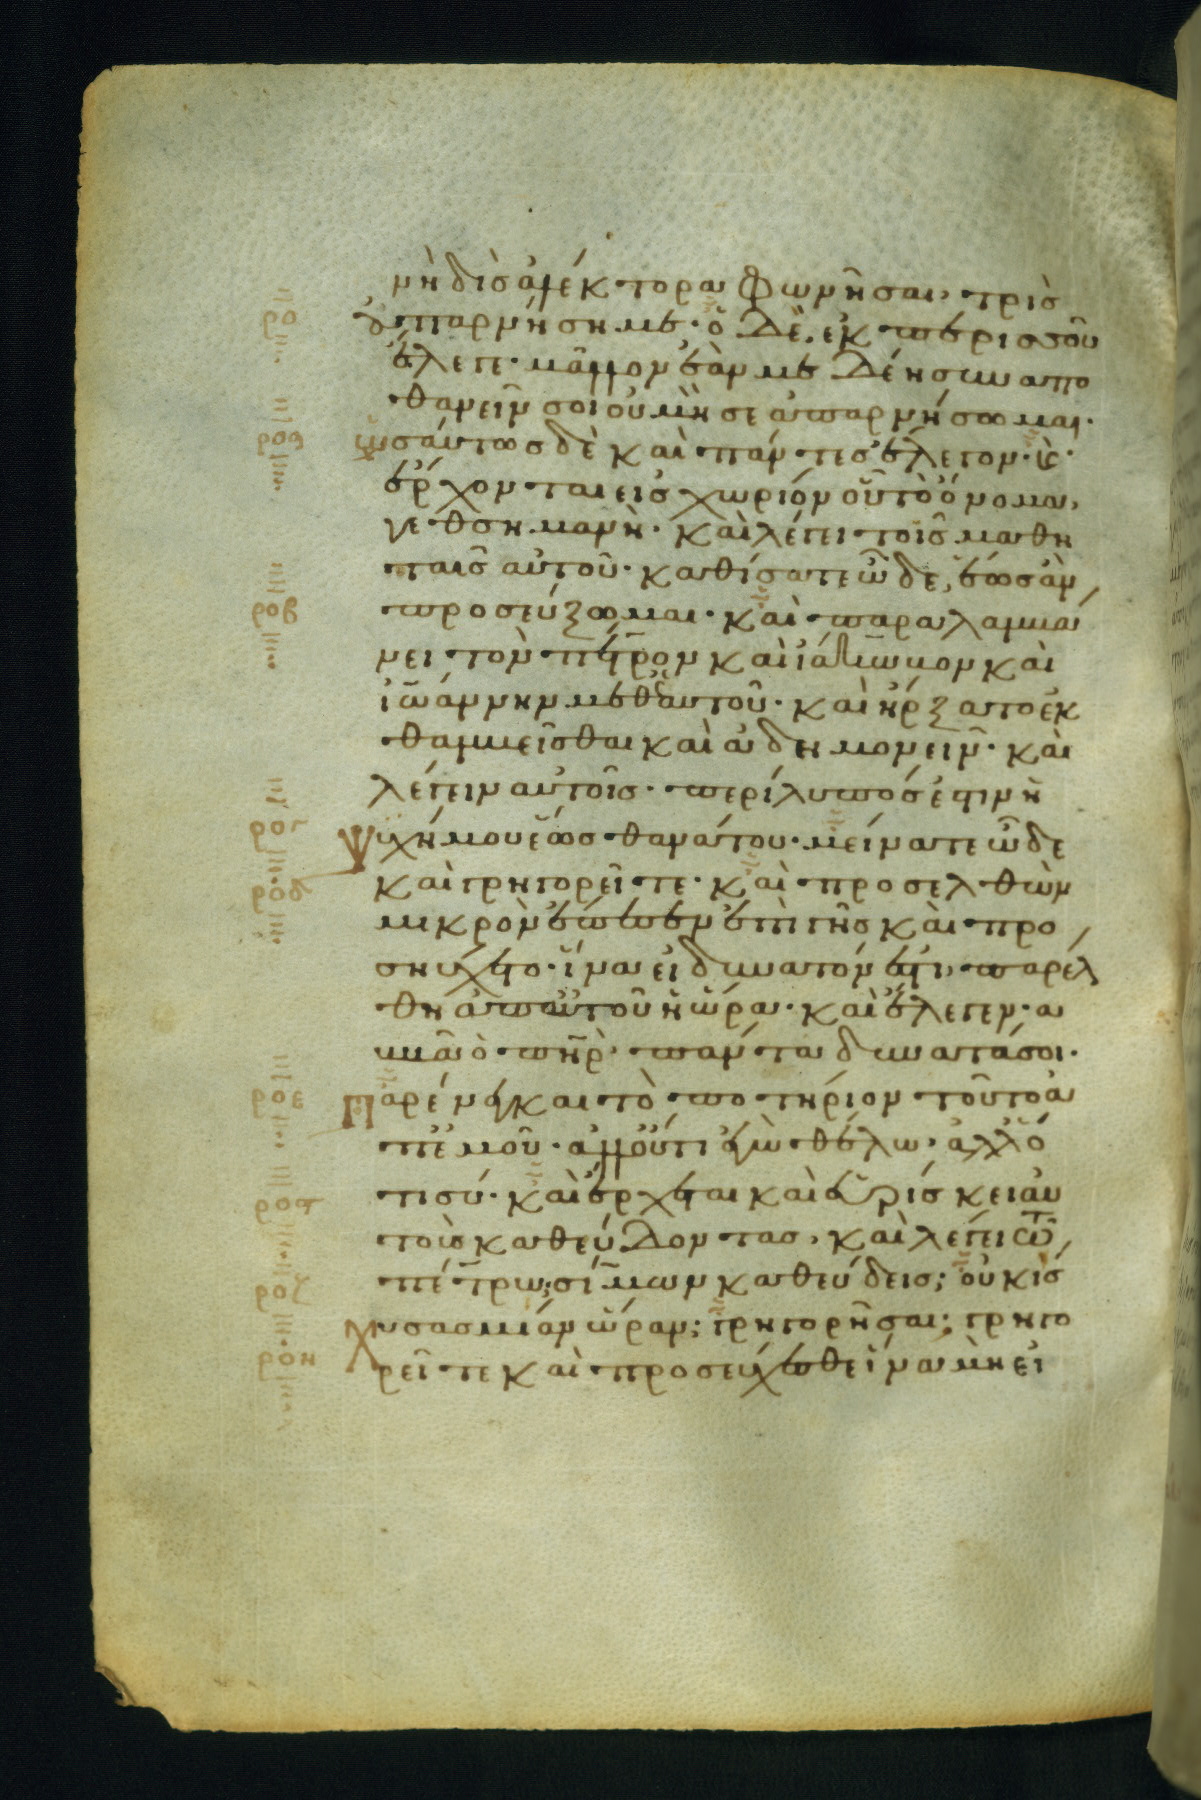 ρο
ροα
ροβ
ρογ
ροδ
ροε
ροϛ
ροζ
ροη
νὴ δὶς ἀλέκτορα φωνῆσαι, τρὶς
ἀπαρνήσῃ με· ὁ δὲ, ἐκ περισσοῦ
ἔλεγε· μᾶλλον ἐάν με δέῃ συναπο
θανεῖν σοι οὐ μὴ σε ἀπαρνήσωμαι·
ὡσαύτως δὲ καὶ πάντες ἔλεγον· κ̀·
ἔρχονται εἰς χωρίον οὗ τὸ ὄνομα,
γεθσημανὴ· καὶ λέγει τοῖς μαθη
ταῖς αὐτοῦ· καθίσατε ὧδε, ἕως ἂν
προσεύξωμαι· καὶ παραλαμβά
νει τὸν πέτρον καὶ ἰάκωβον καὶ
ἰωάννην μεθ' ἑαυτοῦ· καὶ ἤρξατο ἐκ
θαμβεῖσθαι καὶ ἀδημονεῖν· καὶ
λέγειν αὐτοῖς· περίλυπός ἐστιν ἡ
ψυχή μου ἕως θανάτου· μείνατε ὧδε
καὶ γρηγορεῖτε· καὶ προσελθὼν
μικρὸν ἔπεσεν ἐπὶ γῆς καὶ προ
σηύχετο· ἵνα εἰ δυνατόν ἐστι, παρέλ
θῃ ἀπ' αὐτοῦ ἡ ὥρα· καὶ ἔλεγεν· α
ββᾶ ὁ πη̅ρ· πάντα δυνατά σοι·
παρένεγκαι τὸ ποτήριον τοῦτο ἀ
π' ἐμοῦ· ἀλλ' οὔτι ἐγὼ θέλω· ἀλλ' ὅ
τι σύ· καὶ ἔρχεται καὶ εὑρίσκει αὐ
τοὺς καθεύδοντας, καὶ λέγει τῷ
πέτρω· σίμων καθεύδεις; οὐκ ἰσ
χυσας μίαν ὥραν; γρηγορῆσαι; γρηγο
ρεῖτε καὶ προσεύχεσθε ἵνα μὴ εἰ